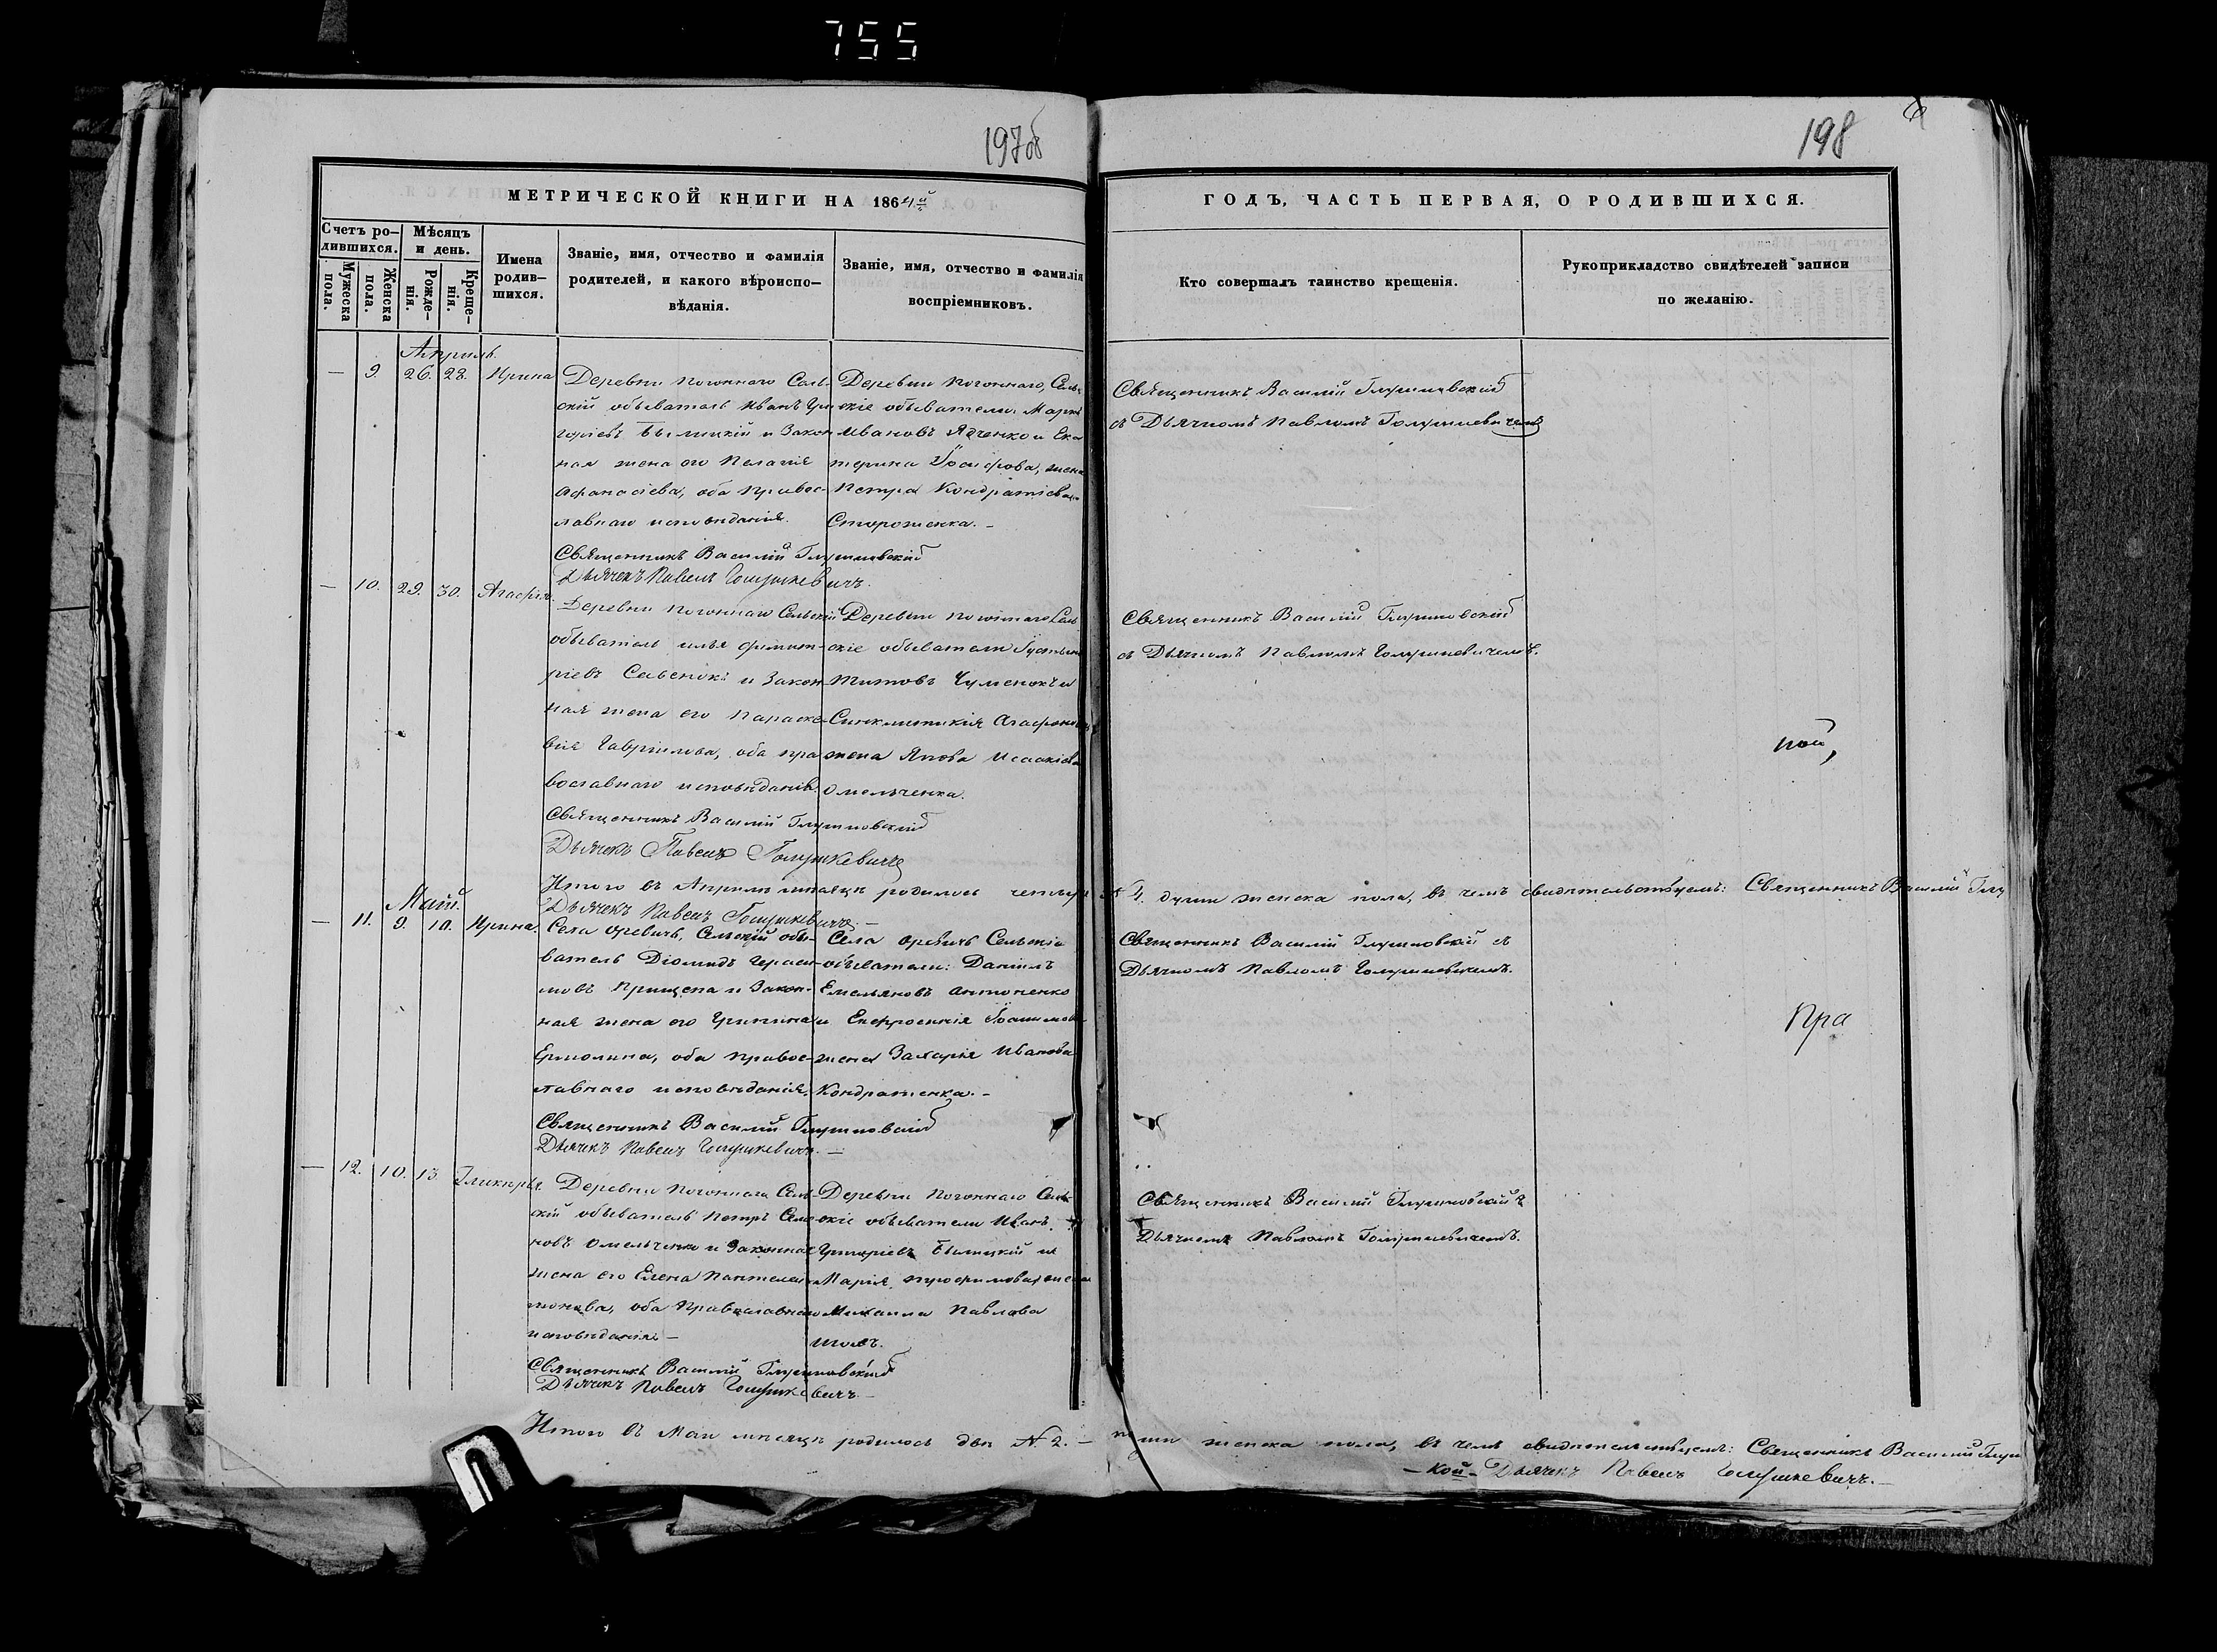 755
197об
198
МЕТРИЧЕСКОЙ КНИГИ НА 1864й
ГОДЪ, ЧАСТЬ ПЕРВАЯ, О РОДИВШИХСЯ.
Счетъ ро-
дившихся.
Мужеска
пола.
Женска
пола.
Мѣсяцъ
и день.
Рожде-
нія.
Креще-
нія.
Имена
родив-
шихся.
Званіе, имя, отчество и фамилія
родителей, и какого вѣроиспо-
вѣданія.
Званіе, имя, отчество и фамилія
воспріемниковъ.
Кто совершалъ таинство крещенія.
Рукоприкладство свидѣтелей записи
по желанію.
Апрель.
— 9. 26. 28. Ирина
Деревни Погоннаго Сель-
скій обыватель Иванъ Гри
горіевъ Былицкій и Закон
ная жена его Пелагія
Афанасіева, оба Правос-
лавнаго исповѣданія.
Деревни Погоннаго, Сель
скіе обыватели: Марко
Ивановъ Ядченко и Ека
терина Іосифова, жена
Петра Кондратіева
Стороженка. –
Священникъ Василій
Дьячекъ Павелъ
Священникъ Василій
съ Дьячкомъ Павломъ
— 10. 29. 30. Агафія.
Деревни Погоннаго Сельскій
обыватель Илья Димит-
ріевъ Савенокъ и Закон
ная жена его Параске-
вія Гавріилова, оба пра
вославнаго исповѣданія.
Деревни Погоннаго Сель
скіе обыватели
Титовъ и
Синклитикія
жена Якова Исаакіева
Омельченка.
Священникъ Василій
Дьячекъ Павелъ
Священникъ Василій
съ Дьячкомъ Павломъ
Итого въ Апрѣлѣ мѣсяцѣ родилось четыре № 4. души женска пола, въ чемъ свидѣтельствуемъ: Священникъ Василій
Дьячекъ Павелъ
Май.
— 11. 9. 10. Ирина.
Села Оревичъ, Сельскій обы-
ватель Діомидъ Гераси-
мовъ Прищепа и Закон-
ная жена его
Ермолина, оба правос-
лавнаго исповѣданія.
Села Оревичъ Сельскіе
обыватели: Даніилъ
Емельяновъ Антоненко
и Евфросинія
жена Захарія Иванова
Кондратенка. –
Священникъ Василій
Дьячекъ Павелъ
Священникъ Василій съ
Дьячкомъ Павломъ
Пра
— 12. 10. 13. Гликирія.
Деревни Погоннаго Сель-
скій обыватель Петръ
новъ Омельченко и Законная
жена его Елена Пантелей
монова, оба Православнаго
исповѣданія –
Деревни Погоннаго Сель-
скіе обыватели Иванъ
Григоріевъ Былицкій и
Марія Трофимова, жена
Михаила Павлова
Священникъ Василій
Дьячекъ Павелъ
Священникъ Василій съ
Дьячкомъ Павломъ
Итого въ Маи мѣсяцѣ родилось двѣ № 2. – души женска пола, въ чемъ свидѣтельствуемъ: Священникъ Василій
– кой – Дьячекъ Павелъ